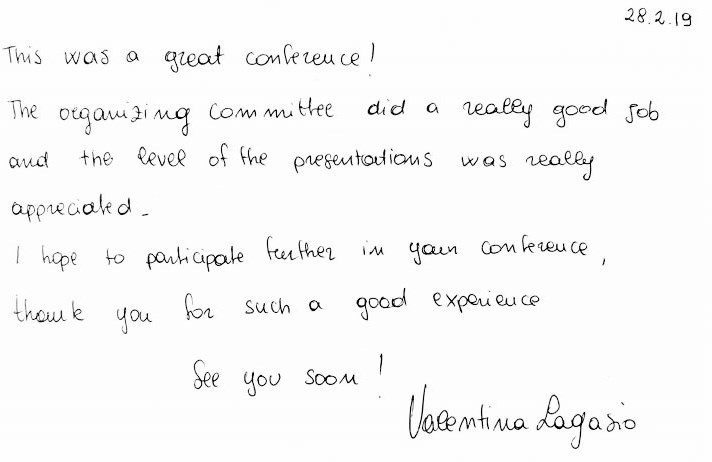 28.2.19
This was a great conference!
The organizing committee did a really good job
and the level of the presentations was really
appreciated.
I hope to participate further in your conference,
thank you for such a good experience
See you soon!
Valentina Lagasio